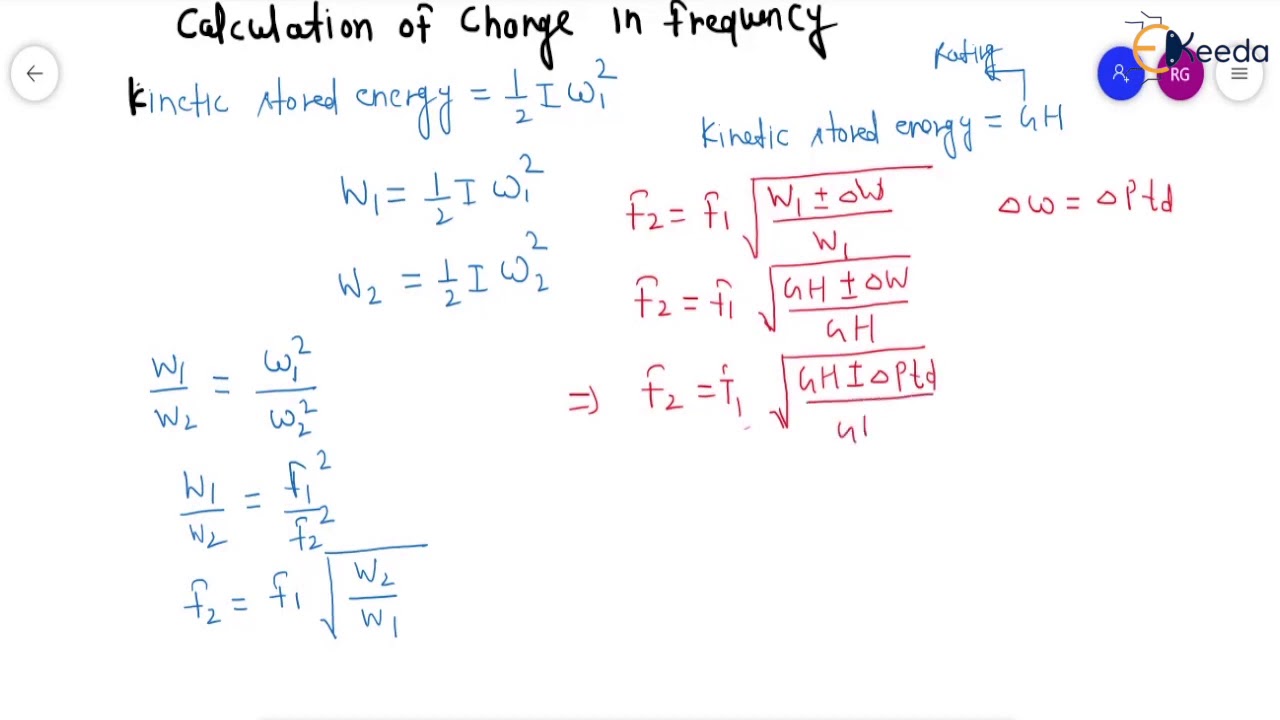 Calculation of Change in frequency
Ekeeda
RG
Kinetic stored energy = 1/2 I ω₁²
W₁ = 1/2 I ω₁²
W₂ = 1/2 I ω₂²
W₁/W₂ = ω₁²/ω₂²
W₁/W₂ = f₁²/f₂²
f₂ = f₁ √(W₂/W₁)
Rating
Kinetic stored energy = GH
f₂ = f₁ √((W₁ ± ΔW)/W₁)
Δw = ΔPtd
f₂ = f₁ √((GH ± ΔW)/GH)
⇒ f₂ = f₁ √((GH ± ΔPtd)/G